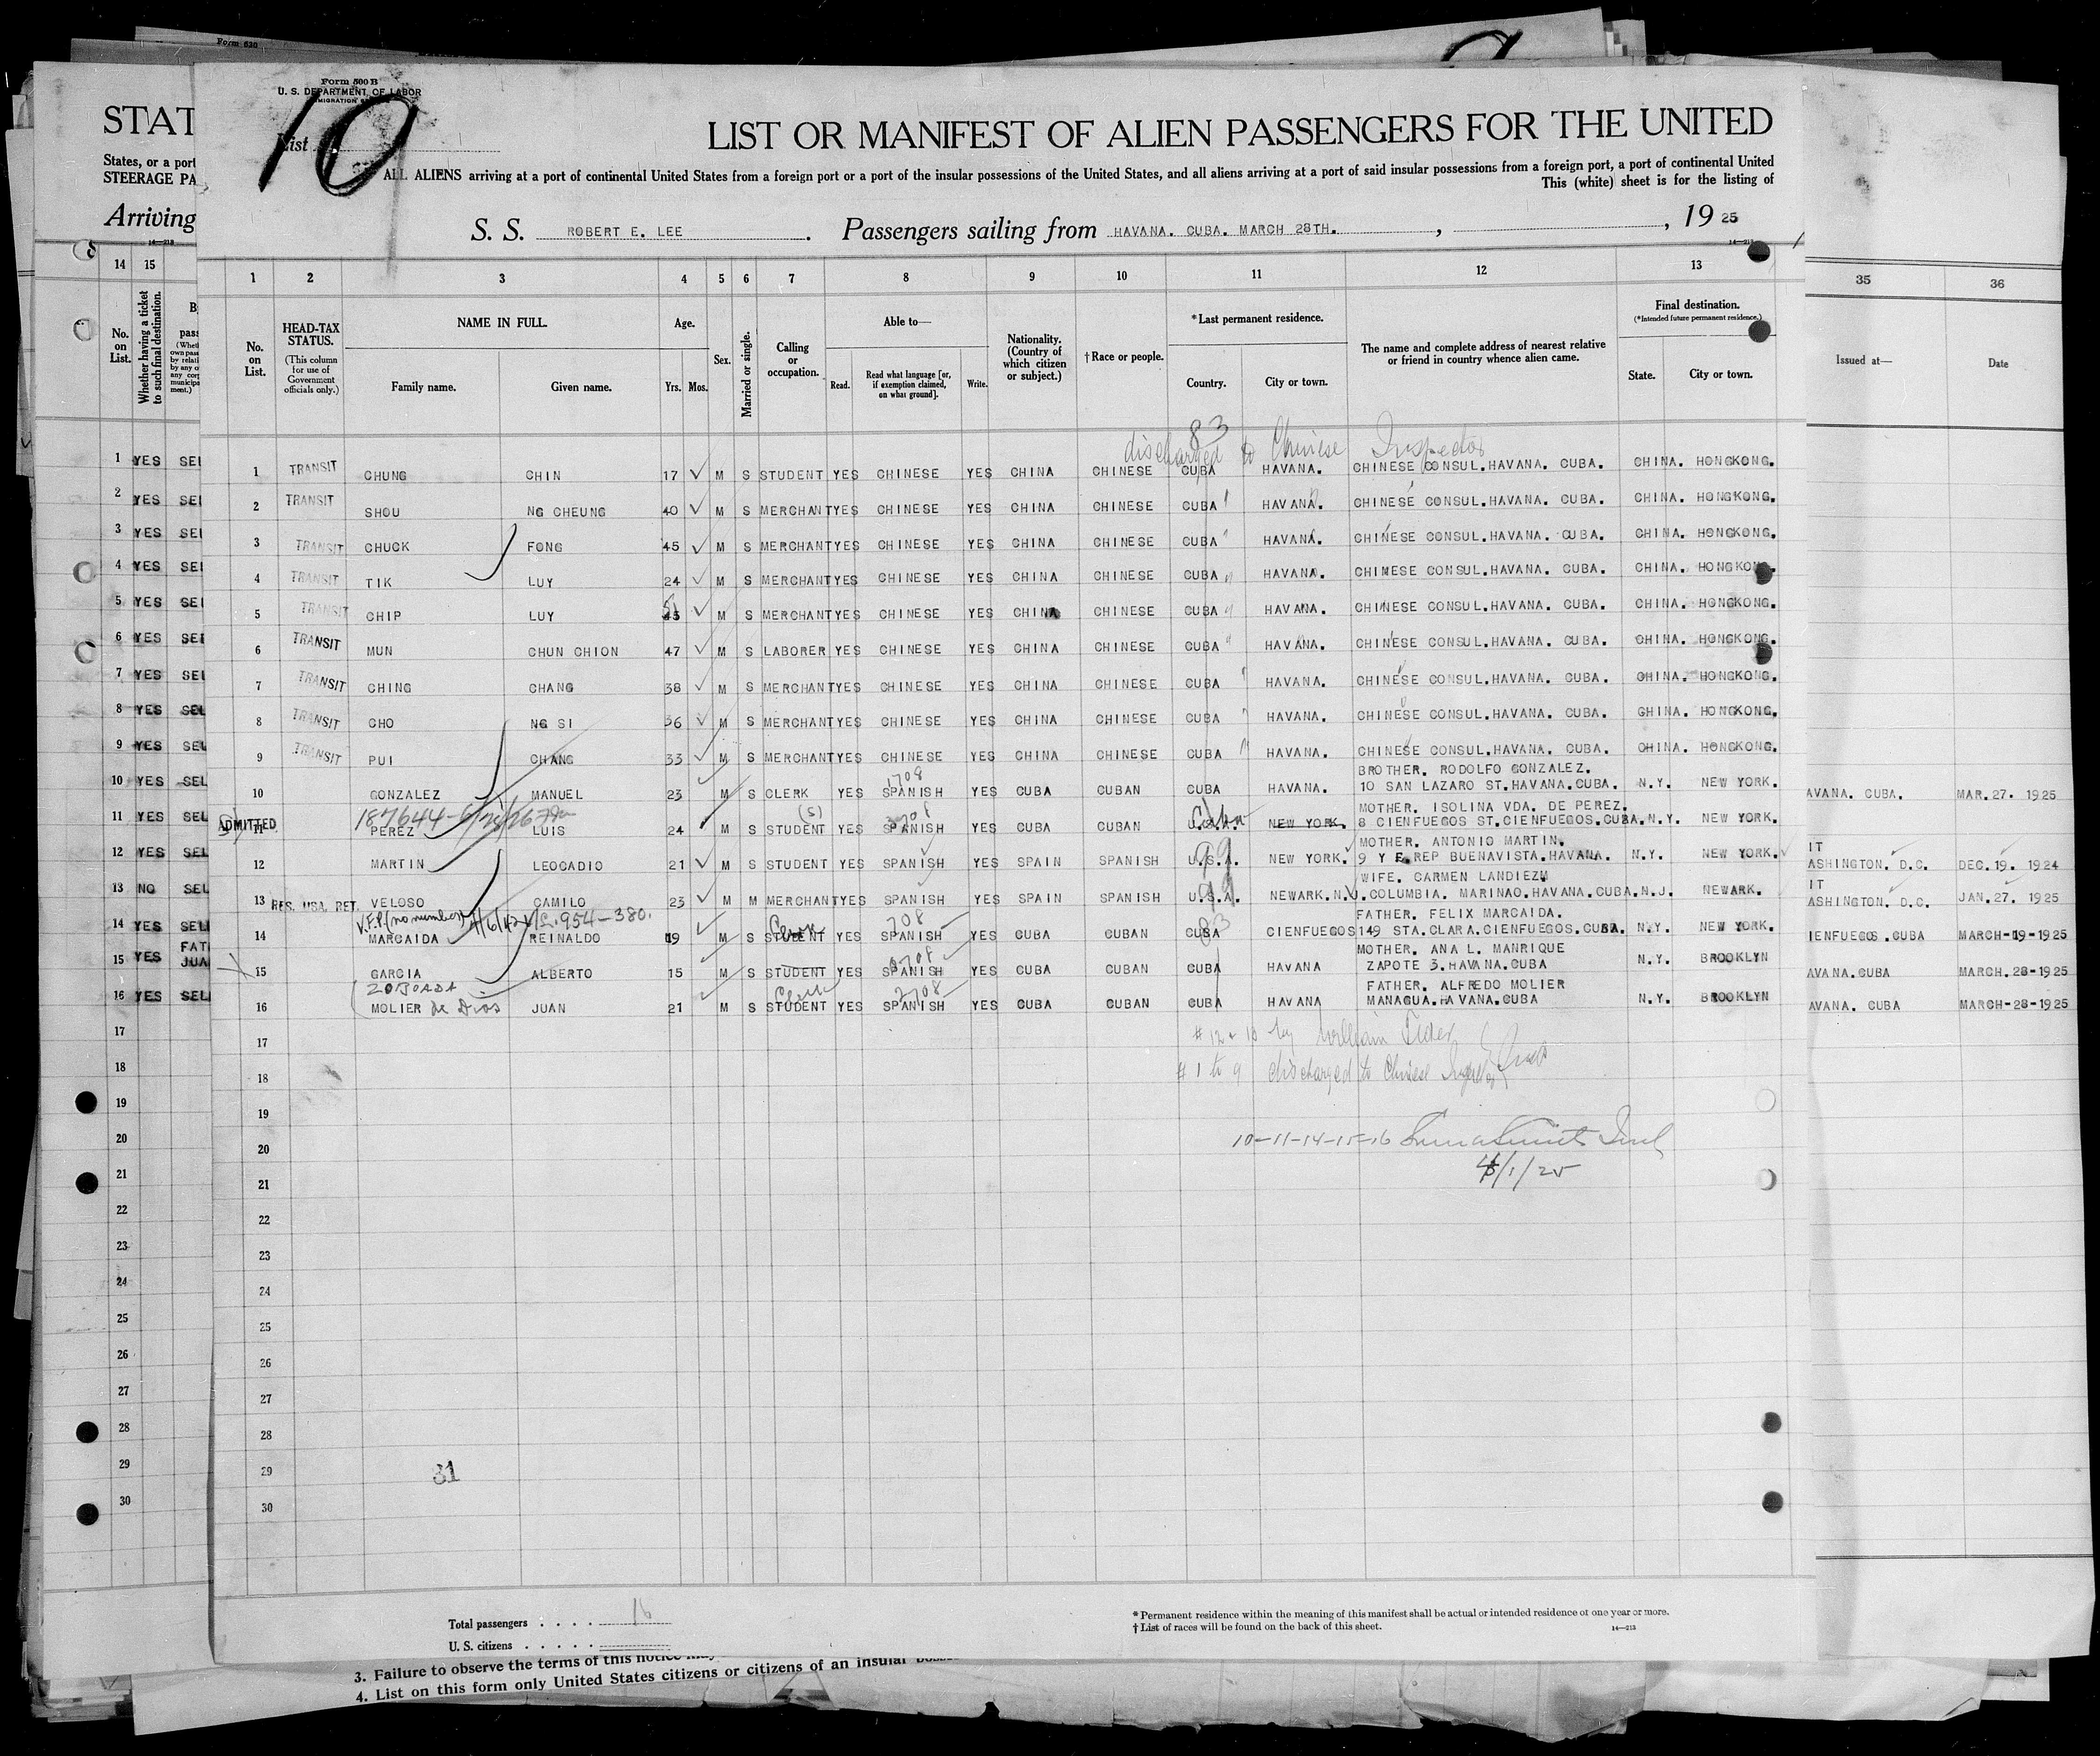 Form 630
Form 500 B
U. S. DEPARTMENT OF LABOR
IMMIGRATION
List 10
STAT
LIST OR MANIFEST OF ALIEN PASSENGERS FOR THE UNITED
States, or a port
STEERAGE PA
ALL ALIENS arriving at a port of continental United States from a foreign port or a port of the insular possessions of the United States, and all aliens arriving at a port of said insular possessions from a foreign port, a port of continental United
This (white) sheet is for the listing of
Arriving
S. S. ROBERT E. LEE. Passengers sailing from HAVANA. CUBA. MARCH 28TH. , , 19 25
14—213
14 15 1 2 3 4 5 6 7 8 9 10 11 12 13 35 36
No. on List. Whether having a ticket to such final destination.
No. on List. HEAD-TAX STATUS. (This column for use of Government officials only.) NAME IN FULL. Family name. Given name. Age. Yrs. Mos. Sex. Married or single. Calling or occupation. Able to— Read. Read what language [or, if exemption claimed, on what ground]. Write. Nationality. (Country of which citizen or subject.) †Race or people. *Last permanent residence. Country. City or town. The name and complete address of nearest relative or friend in country whence alien came. Final destination. (*Intended future permanent residence.) State. City or town. Issued at— Date
83
discharged to Chinese Inspector
1 YES SEL 1 TRANSIT CHUNG CHIN 17 M S STUDENT YES CHINESE YES CHINA CHINESE CUBA HAVANA. CHINESE CONSUL. HAVANA. CUBA. CHINA. HONGKONG.
2 YES SEL 2 TRANSIT SHOU NG CHEUNG 40 M S MERCHANT YES CHINESE YES CHINA CHINESE CUBA HAVANA. CHINESE CONSUL. HAVANA. CUBA. CHINA. HONGKONG.
3 YES SEL 3 TRANSIT CHUCK FONG 45 M S MERCHANT YES CHINESE YES CHINA CHINESE CUBA HAVANA. CHINESE CONSUL. HAVANA. CUBA. CHINA. HONGKONG.
4 YES SEL 4 TRANSIT TIK LUY 24 M S MERCHANT YES CHINESE YES CHINA CHINESE CUBA HAVANA. CHINESE CONSUL. HAVANA. CUBA. CHINA. HONGKONG.
5 YES SEL 5 TRANSIT CHIP LUY M S MERCHANT YES CHINESE YES CHINA CHINESE CUBA HAVANA. CHINESE CONSUL. HAVANA. CUBA. CHINA. HONGKONG.
6 YES SEL 6 TRANSIT MUN CHUN CHION 47 M S LABORER YES CHINESE YES CHINA CHINESE CUBA HAVANA. CHINESE CONSUL. HAVANA. CUBA. CHINA. HONGKONG.
7 YES SEL 7 TRANSIT CHING CHANG 38 M S MERCHANT YES CHINESE YES CHINA CHINESE CUBA HAVANA. CHINESE CONSUL. HAVANA. CUBA. CHINA. HONGKONG.
8 YES SEL 8 TRANSIT CHO NG SI 36 M S MERCHANT YES CHINESE YES CHINA CHINESE CUBA HAVANA. CHINESE CONSUL. HAVANA. CUBA. CHINA. HONGKONG.
9 YES SEL 9 TRANSIT PUI CHANG 33 M S MERCHANT YES CHINESE YES CHINA CHINESE CUBA HAVANA. CHINESE CONSUL. HAVANA. CUBA. CHINA. HONGKONG.
1708 BROTHER. RODOLFO GONZALEZ.
10 YES SEL 10 GONZALEZ MANUEL 23 M S CLERK YES SPANISH YES CUBA CUBAN CUBA HAVANA. 10 SAN LAZARO ST. HAVANA. CUBA. N.Y. NEW YORK. AVANA. CUBA. MAR. 27. 1925
187644 (S) Cuba MOTHER. ISOLINA VDA. DE PEREZ.
11 YES SEL ADMITTED 11 PEREZ LUIS 24 M S STUDENT YES SPANISH YES CUBA CUBAN U.S.A. NEW YORK. 8 CIENFUEGOS ST. CIENFUEGOS. CUBA. N.Y. NEW YORK.
99 MOTHER. ANTONIO MARTIN. IT
12 YES SEL 12 MARTIN LEOCADIO 21 M S STUDENT YES SPANISH YES SPAIN SPANISH U.S.A. NEW YORK. 9 Y E. REP BUENAVISTA. HAVANA. N.Y. NEW YORK. ASHINGTON. D.C. DEC. 19. 1924
99 WIFE. CARMEN LANDIEZM IT
13 NO SEL 13 RES. USA. RET. VELOSO CAMILO 23 M M MERCHANT YES SPANISH YES SPAIN SPANISH U.S.A. NEWARK. N.J. COLUMBIA. MARINAO. HAVANA. CUBA. N.J. NEWARK. ASHINGTON. D.C. JAN. 27. 1925
V.F.P. (no number) 4/6/42 954-380. 708 83 FATHER. FELIX MARCAIDA.
14 YES SEL 14 MARCAIDA REINALDO 19 M S STUDENT YES SPANISH YES CUBA CUBAN CUBA CIENFUEGOS 149 STA. CLARA. CIENFUEGOS. CUBA. N.Y. NEW YORK. IENFUEGOS. CUBA MARCH-19-1925
MOTHER. ANA L. MANRIQUE
15 YES FAT JUA 15 GARCIA ALBERTO 15 M S STUDENT YES SPANISH YES CUBA CUBAN CUBA HAVANA ZAPOTE 3. HAVANA. CUBA N.Y. BROOKLYN AVANA. CUBA MARCH. 28-1925
ZOBOADA Clerk 2708 FATHER. ALFREDO MOLIER
16 YES SEL 16 MOLIER de Dios JUAN 21 M S STUDENT YES SPANISH YES CUBA CUBAN CUBA HAVANA MANAGUA. HAVANA. CUBA N.Y. BROOKLYN AVANA. CUBA MARCH-28-1925
17 17 # 12 & 13 by William
18 18 # 1 to 9 discharged to Chinese Inspector
19 19
20 20 10-11-14-15-16
21 21 4/1/25
22 22
23 23
24 24
25 25
26 26
27 27
28 28
29 29 31
30 30
Total passengers . . . . 16
U. S. citizens . . . . .
*Permanent residence within the meaning of this manifest shall be actual or intended residence of one year or more.
†List of races will be found on the back of this sheet. 14—213
3. Failure to observe the terms of this notice may
4. List on this form only United States citizens or citizens of an insular